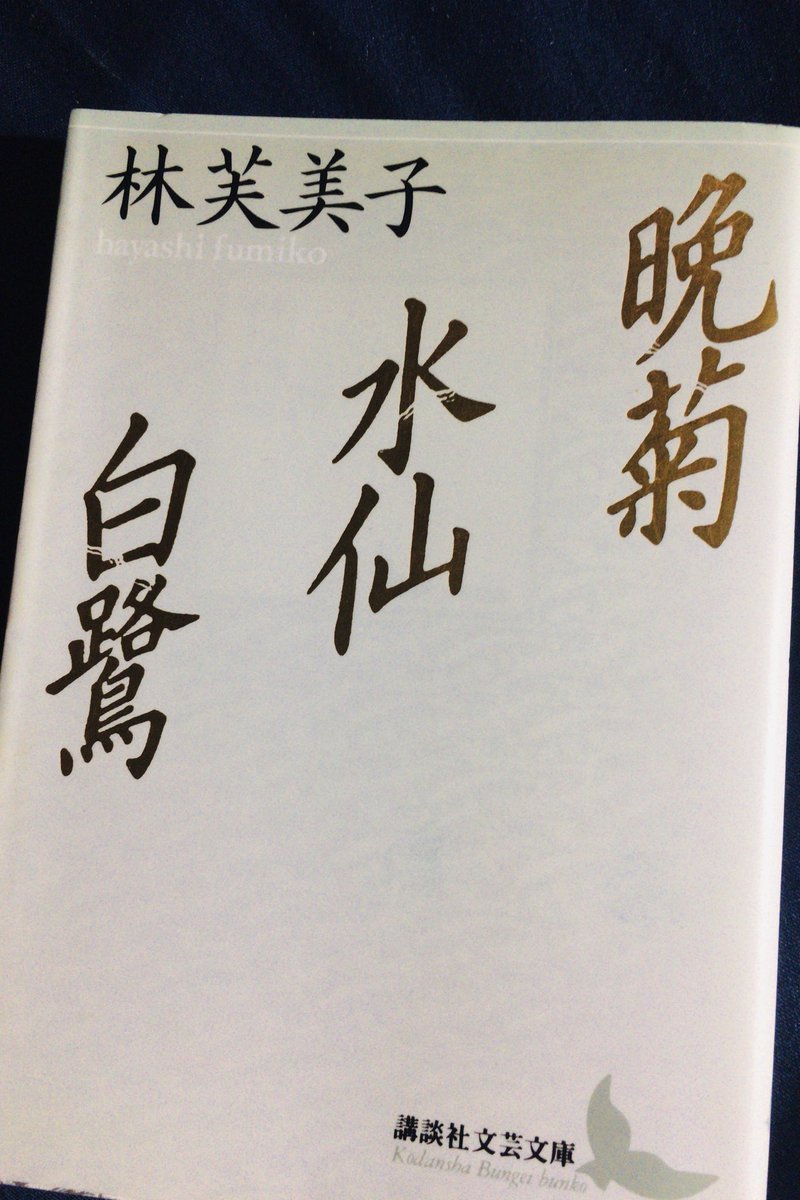 林芙美子
hayashi fumiko
晩菊
水仙
白鷺
講談社文芸文庫
Kōdansha Bungei bunko